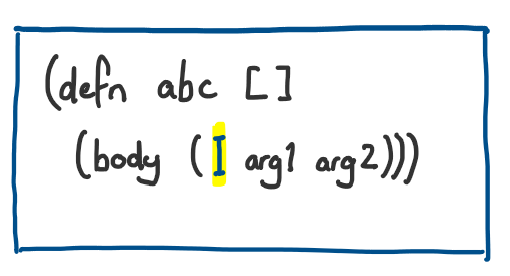 (defn abc []
(body ( arg1 arg2)))